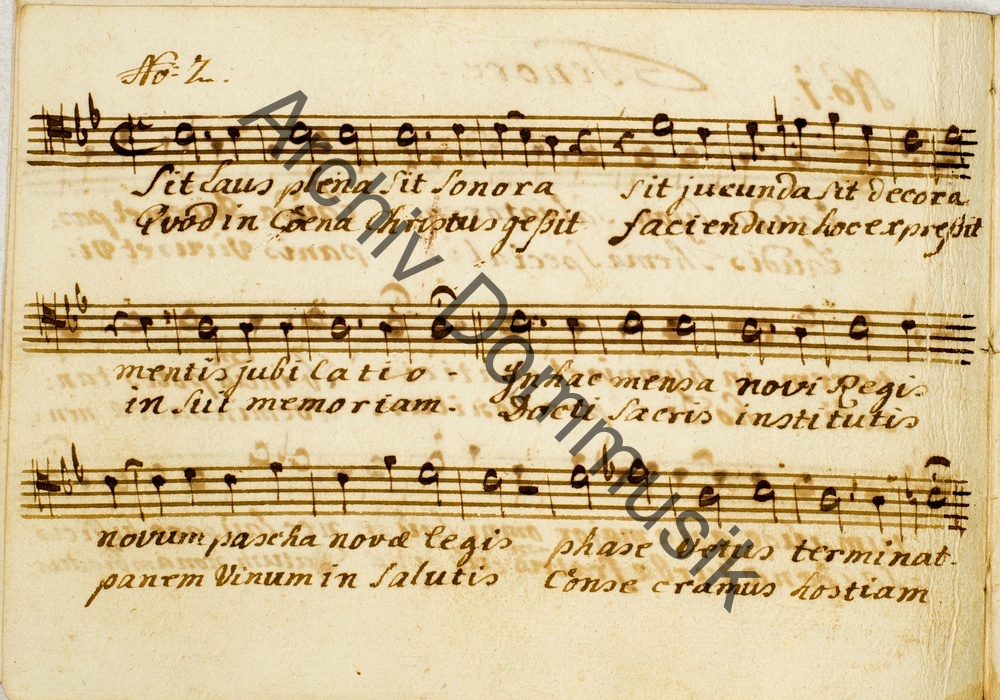 No: 2.
Sit laus plena sit sonora sit jucunda sit decora
Quod in Coena Christus geßit faciendum hoc expreßit
mentis jubilatio - In hac mensa novi Regis
in sui memoriam. Docti sacris institutis
novum pascha novæ legis phase vetus terminat.
panem Vinum in salutis Conse cramus hostiam
Archiv Dommusik